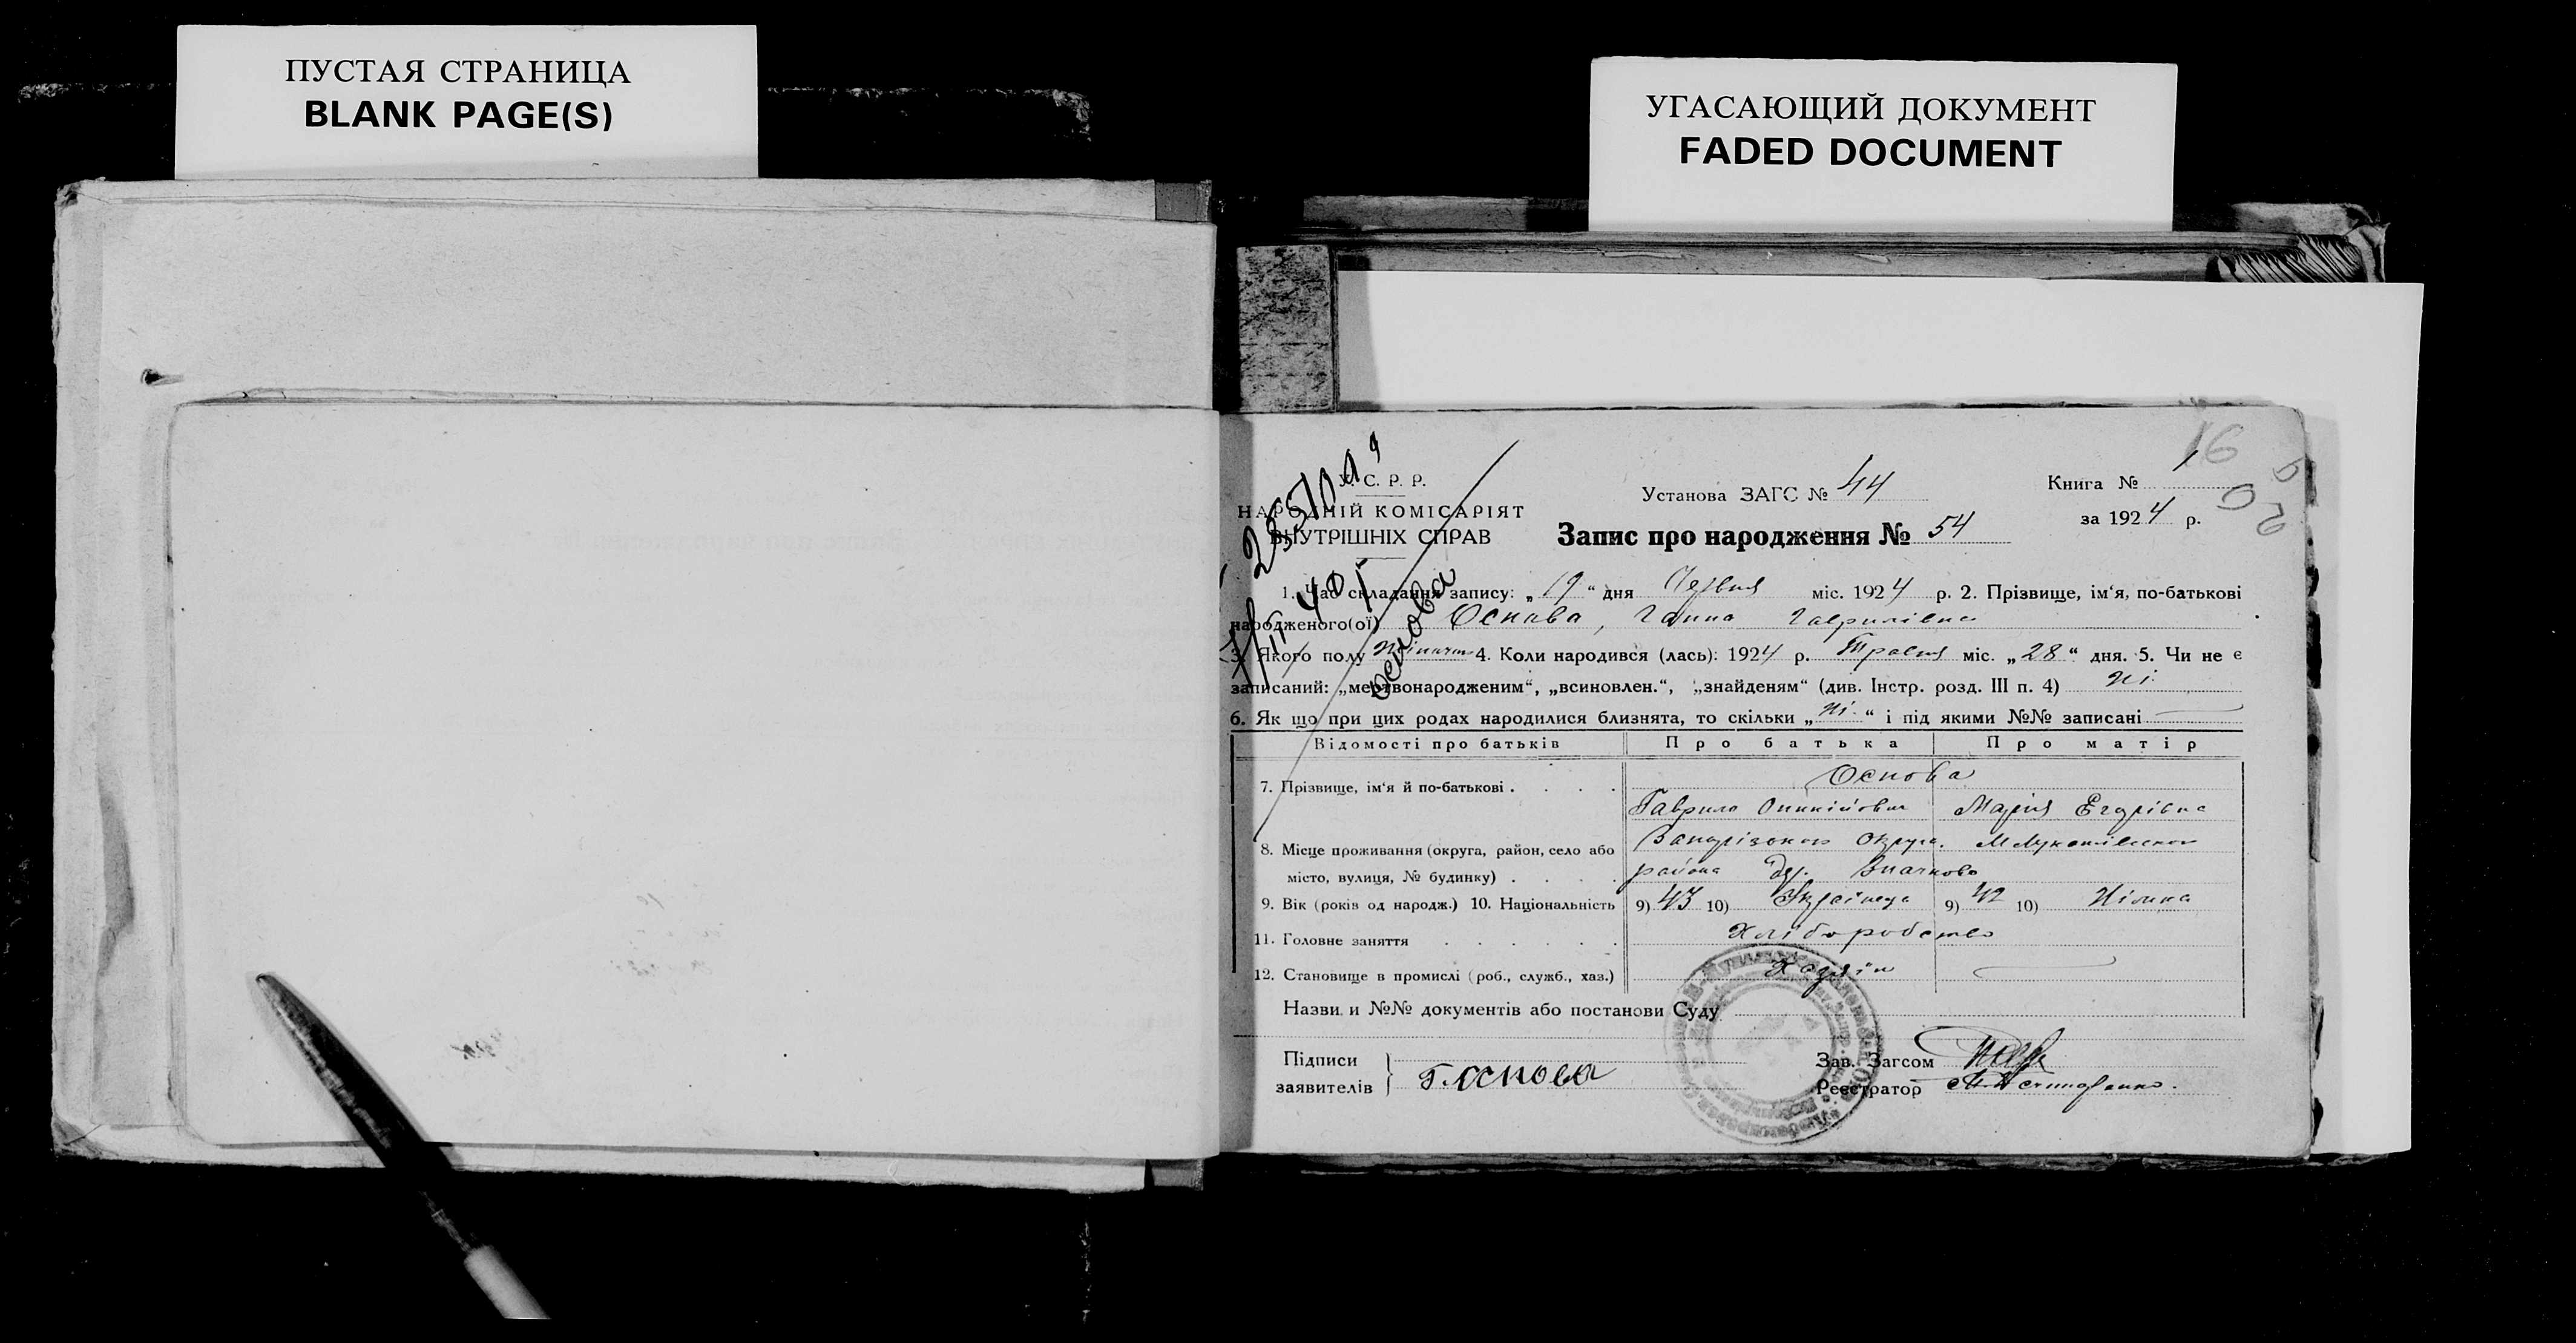 ПУСТАЯ СТРАНИЦА
BLANK PAGE(S)
УГАСАЮЩИЙ ДОКУМЕНТ
FADED DOCUMENT
16
У. С. Р. Р.
НАРОДНІЙ КОМІСАРІЯТ
ВНУТРІШНІХ СПРАВ
Основа
Установа ЗАГС № 44
Книга № 1
за 1924 р.
Запис про народження № 54
1. Час складання запису: „19“ дня Червня міс. 1924 р. 2. Прізвище, ім‘я, по-батькові
народженого(ої) Основа, Ганна Гаврилівна
3. Якого полу 4. Коли народився (лась): 1924 р. Травня міс. „28“ дня. 5. Чи не є
записаний: „мертвонародженим“, „всиновлен.“, „знайденям“ (див. Інстр. розд. III п. 4) ні
6. Як що при цих родах народилися близнята, то скільки „ні“ і під якими №№ записані
Відомості про батьків Про батька Про матір
7. Прізвище, ім‘я й по-батькові . . . . Основа
Гаврило Марія Егорівна
8. Місце проживання (округа, район, село або
місто, вулиця, № будинку) . . . . района
9. Вік (років од народж.) 10. Національність 9) 43 10) Українець 9) 42 10) Німка
11. Головне заняття . . . . . . Хліборобство
12. Становище в промислі (роб., служб., хаз.) Хазяїн
Назви и №№ документів або постанови Суду
Підписи
заявителів
Г. Основа
Зав. Загсом
Реєстратор